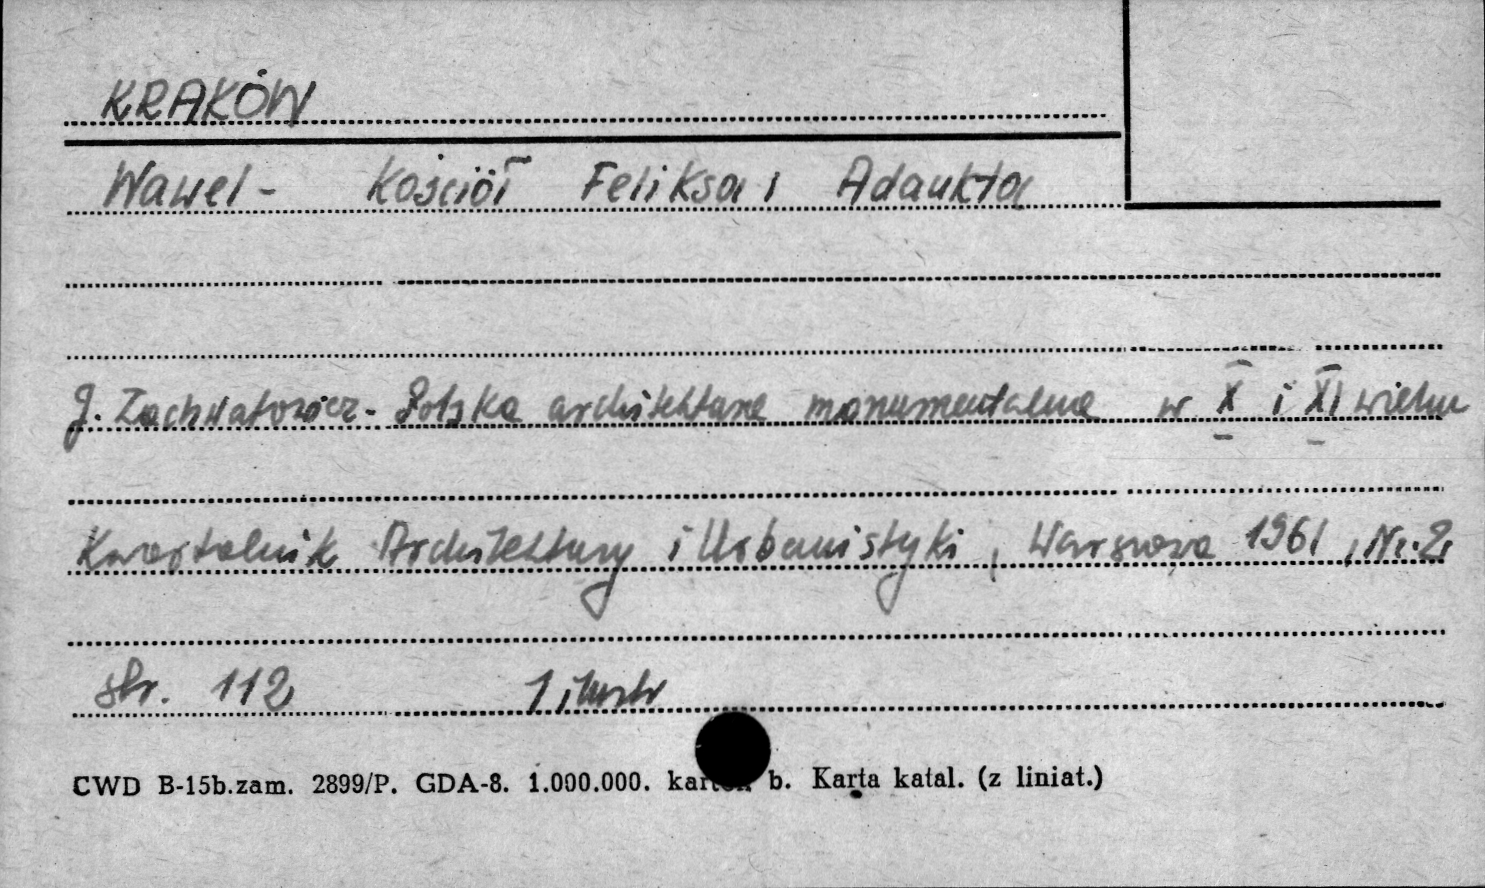 KRAKÓW
Wawel - Kościół Feliksa i Adaukta
J. Zachwatowicz - Polska architektura monumentalna w X i XI wieku
Kwartalnik Architektury i Urbanistyki, Warszawa 1961, Nr. 2,
str. 112 1 ilustr
CWD B-15b.zam. 2899/P. GDA-8. 1.000.000. b. Karta katal. (z liniat.)